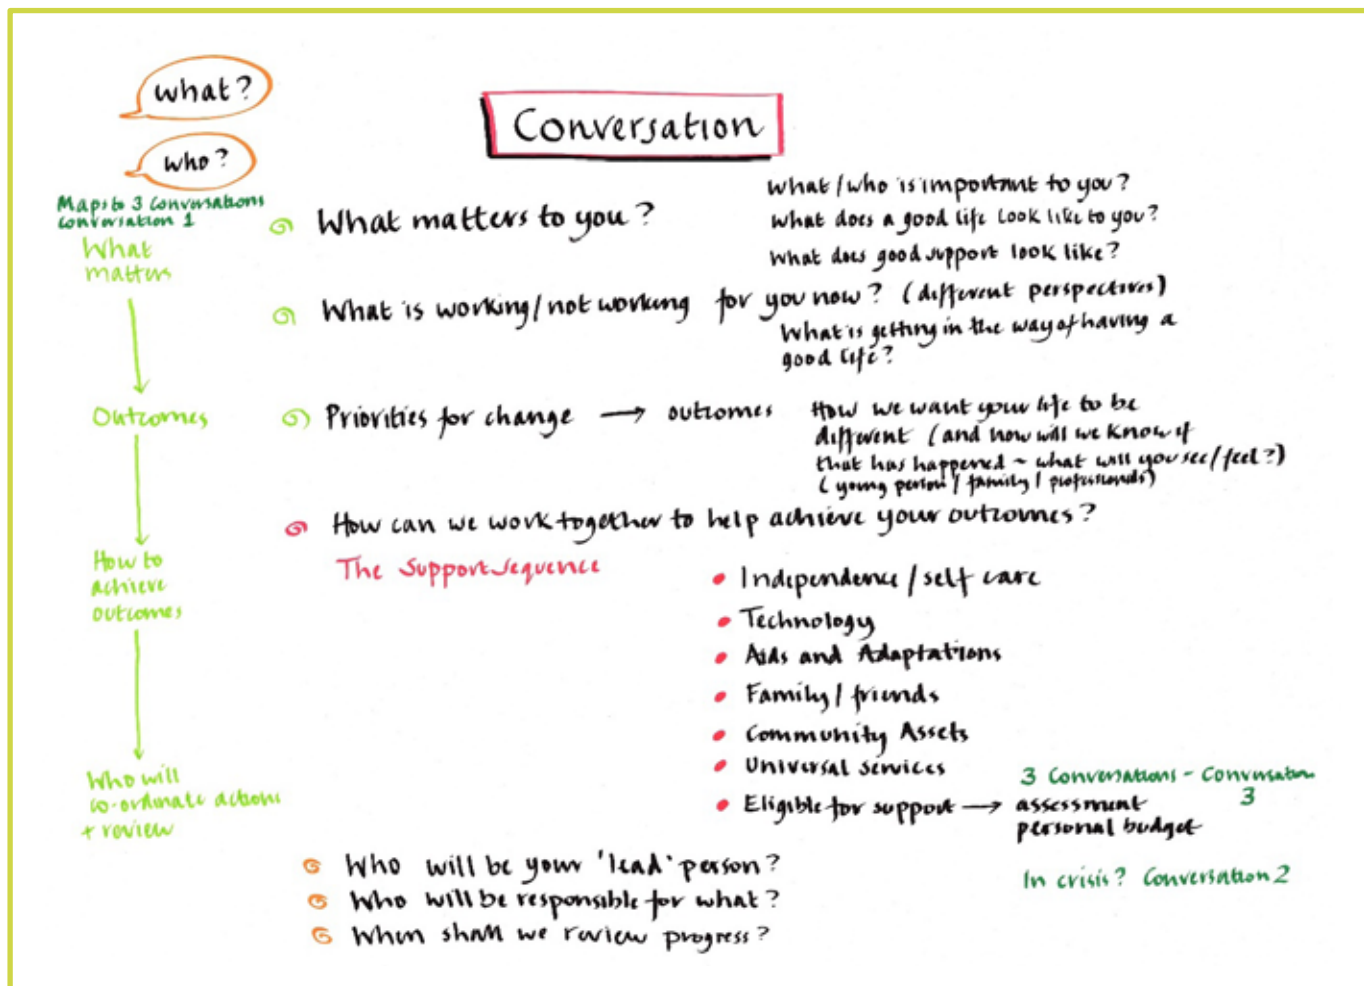 what?
who?
Conversation
Maps to 3 Conversations
Conversation 1
What
matters
What matters to you?
What/who is important to you?
What does a good life look like to you?
What does good support look like?
What is working/not working for you now? (different perspectives)
What is getting in the way of having a
good life?
Outcomes
Priorities for change → outcomes
How we want your life to be
different (and how will we know if
that has happened - what will you see/feel?)
(young person/family/professionals)
How can we work together to help achieve your outcomes?
How to
achieve
outcomes
The Support Sequence
Independence/self care
Technology
Aids and Adaptations
Family/friends
Community Assets
Universal services
Eligible for support → assessment
personal budget
3 Conversations - Conversation
3
In crisis? Conversation 2
Who will
co-ordinate actions
+ review
Who will be your 'lead' person?
Who will be responsible for what?
When shall we review progress?